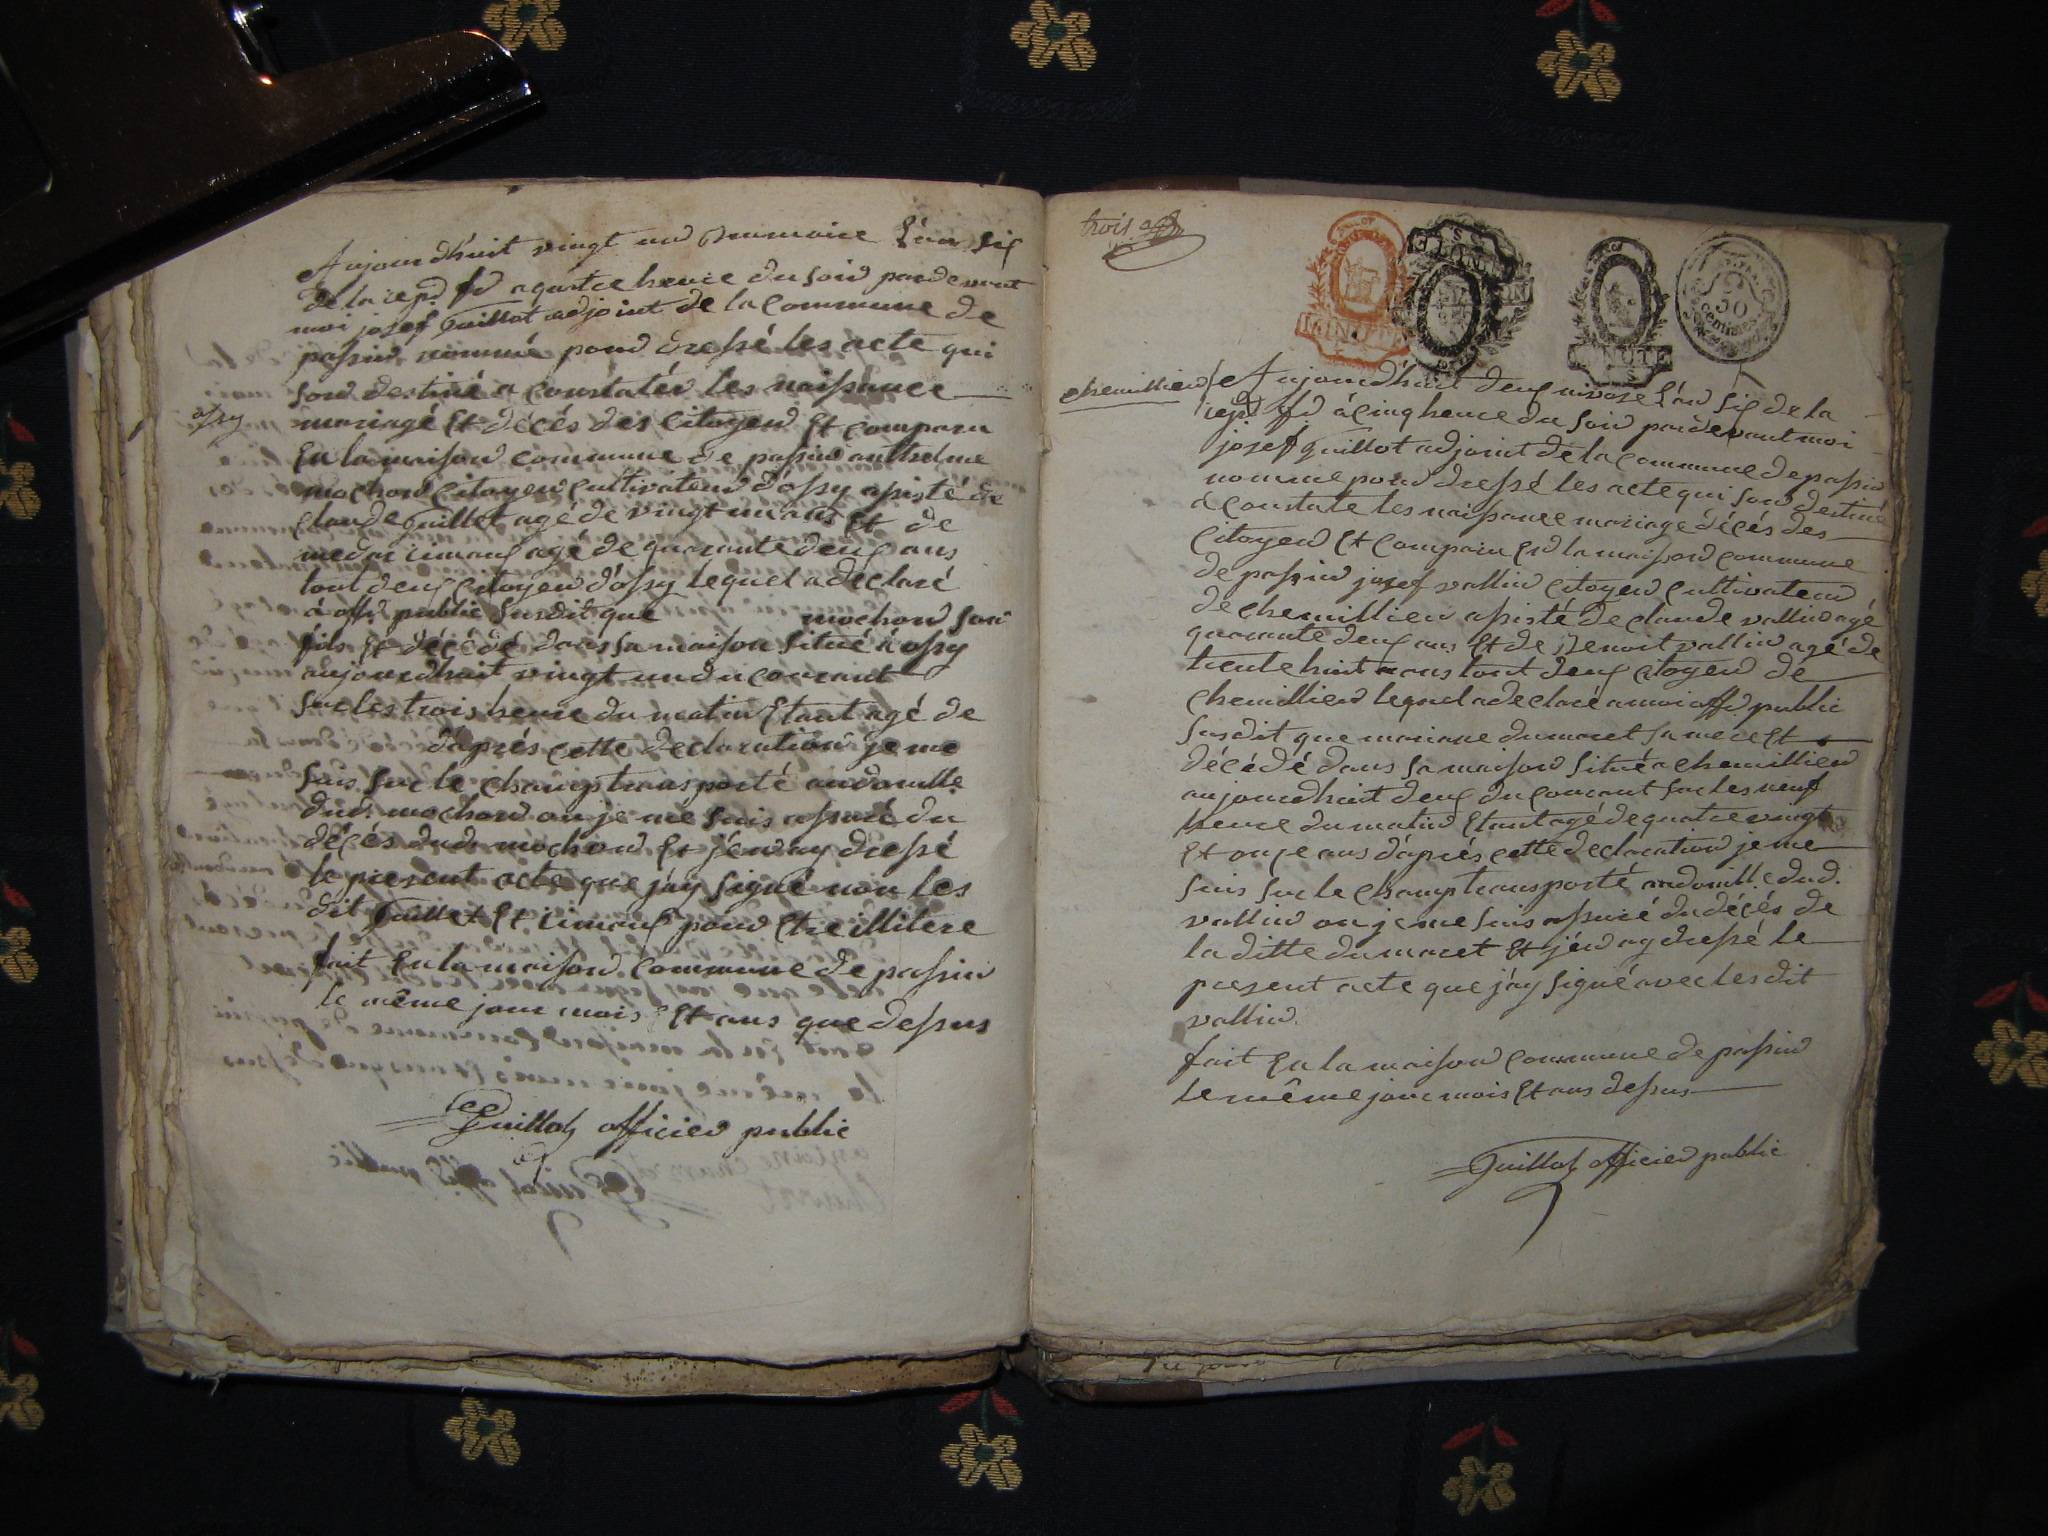 Aujourdhuit vingt un Brumaire l'an six
de la rep. fd a quatre heure du soir pardevant
moi josef Guillot adjoint de la commune de
passin nommé pour dressé les acte qui
son destiné a constatér les naissance
ossy
mariagé Et décés des Citoyen Et comparu
En la maison commune de passin anthelme
mochon Citoyen Cultivateur d'ossy assisté de
claude Guillet agé de vingt un ans Et de
agé de quarante deux ans
tout deux Citoyen d'ossy lequel a déclaré
à off. public susdit que mochon son
fils Et décédé dans sa maison situé à ossy
aujourdhuit vingt un du courant
sur les trois heure du matin Etant agé de
d'aprés cette déclaration je me
suis sur le champ transporté au domille
dud. mochon ou je me suis assuré du
décés dud. mochon Et j'én ay dressé
le present acte que j'ay signé non les
dit Guillet Et pour Etre illitere
fait En la maison commune de passin
le même jour mois Et ans que dessus
Guillot officier public
trois
MINUTE
MINUTE
50
centimes
chemillieu
Aujourdhuit deux nivose l'an six de la
rep. fd à cinq heure du soir pardevant moi
josef Guillot adjoint de la commune de passin
nomme pour dressé les acte qui son destiné
a constate les naissance mariage décés des
Citoyen Et comparu En la maison commune
de passin josef vallin Citoyen Cultivateur
de chemillieu assisté de claude vallin agé
quarante deux ans Et de Benoit vallin agé de
trente huit ans tout deux Citoyen de
chemillieu lequel a declaré a moi off. public
susdit que mariane dumaret sa mere Et
décédé dans sa maison situé a chemillieu
aujourdhuit deux du courant sur les neuf
heure du matin Etant agé de quatre vingt
Et onze ans d'aprés cette declaration je me
suis sur le champ transporté au domille dud.
vallin ou je me suis assuré du décés de
la ditte dumaret Et j'én ay dressé le
present acte que j'ay signé avec les dit
vallin.
fait En la maison commune de passin
le même jour mois Et ans dessus
Guillot officier public